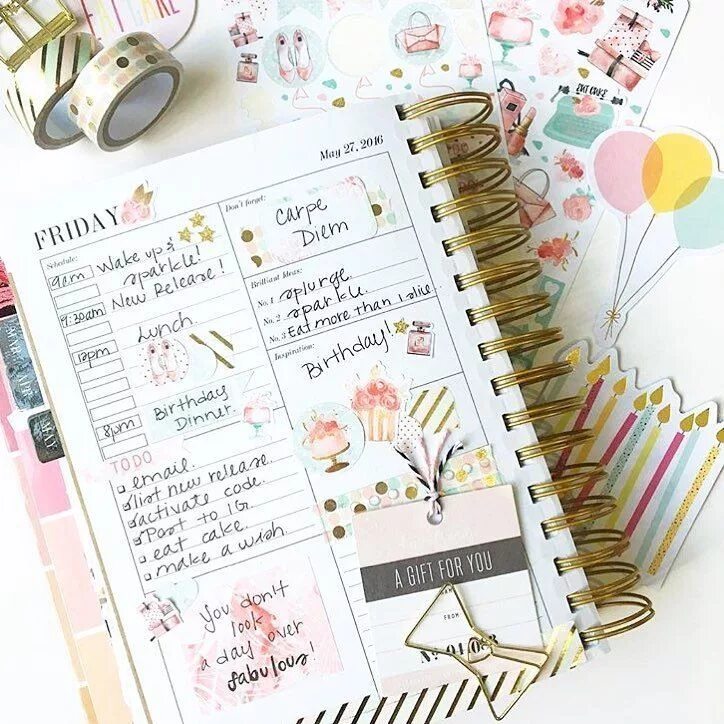 EAT CAKE
EAT CAKE
May 27, 2016
FRIDAY
Schedule:
9am Wake up &
sparkle!
9:30am New Release!
Lunch
12pm
8pm Birthday
Dinner.
TODO
email.
list new release.
activate code.
Post to IG.
eat cake.
make a wish.
You don't
look
a day over
fabulous!
Don't forget:
Carpe
Diem
Brilliant Ideas:
No. 1 splurge.
No. 2 sparkle.
No. 3 Eat more than 1 slice
Inspiration:
Birthday!
A GIFT FOR YOU
FROM
MAY